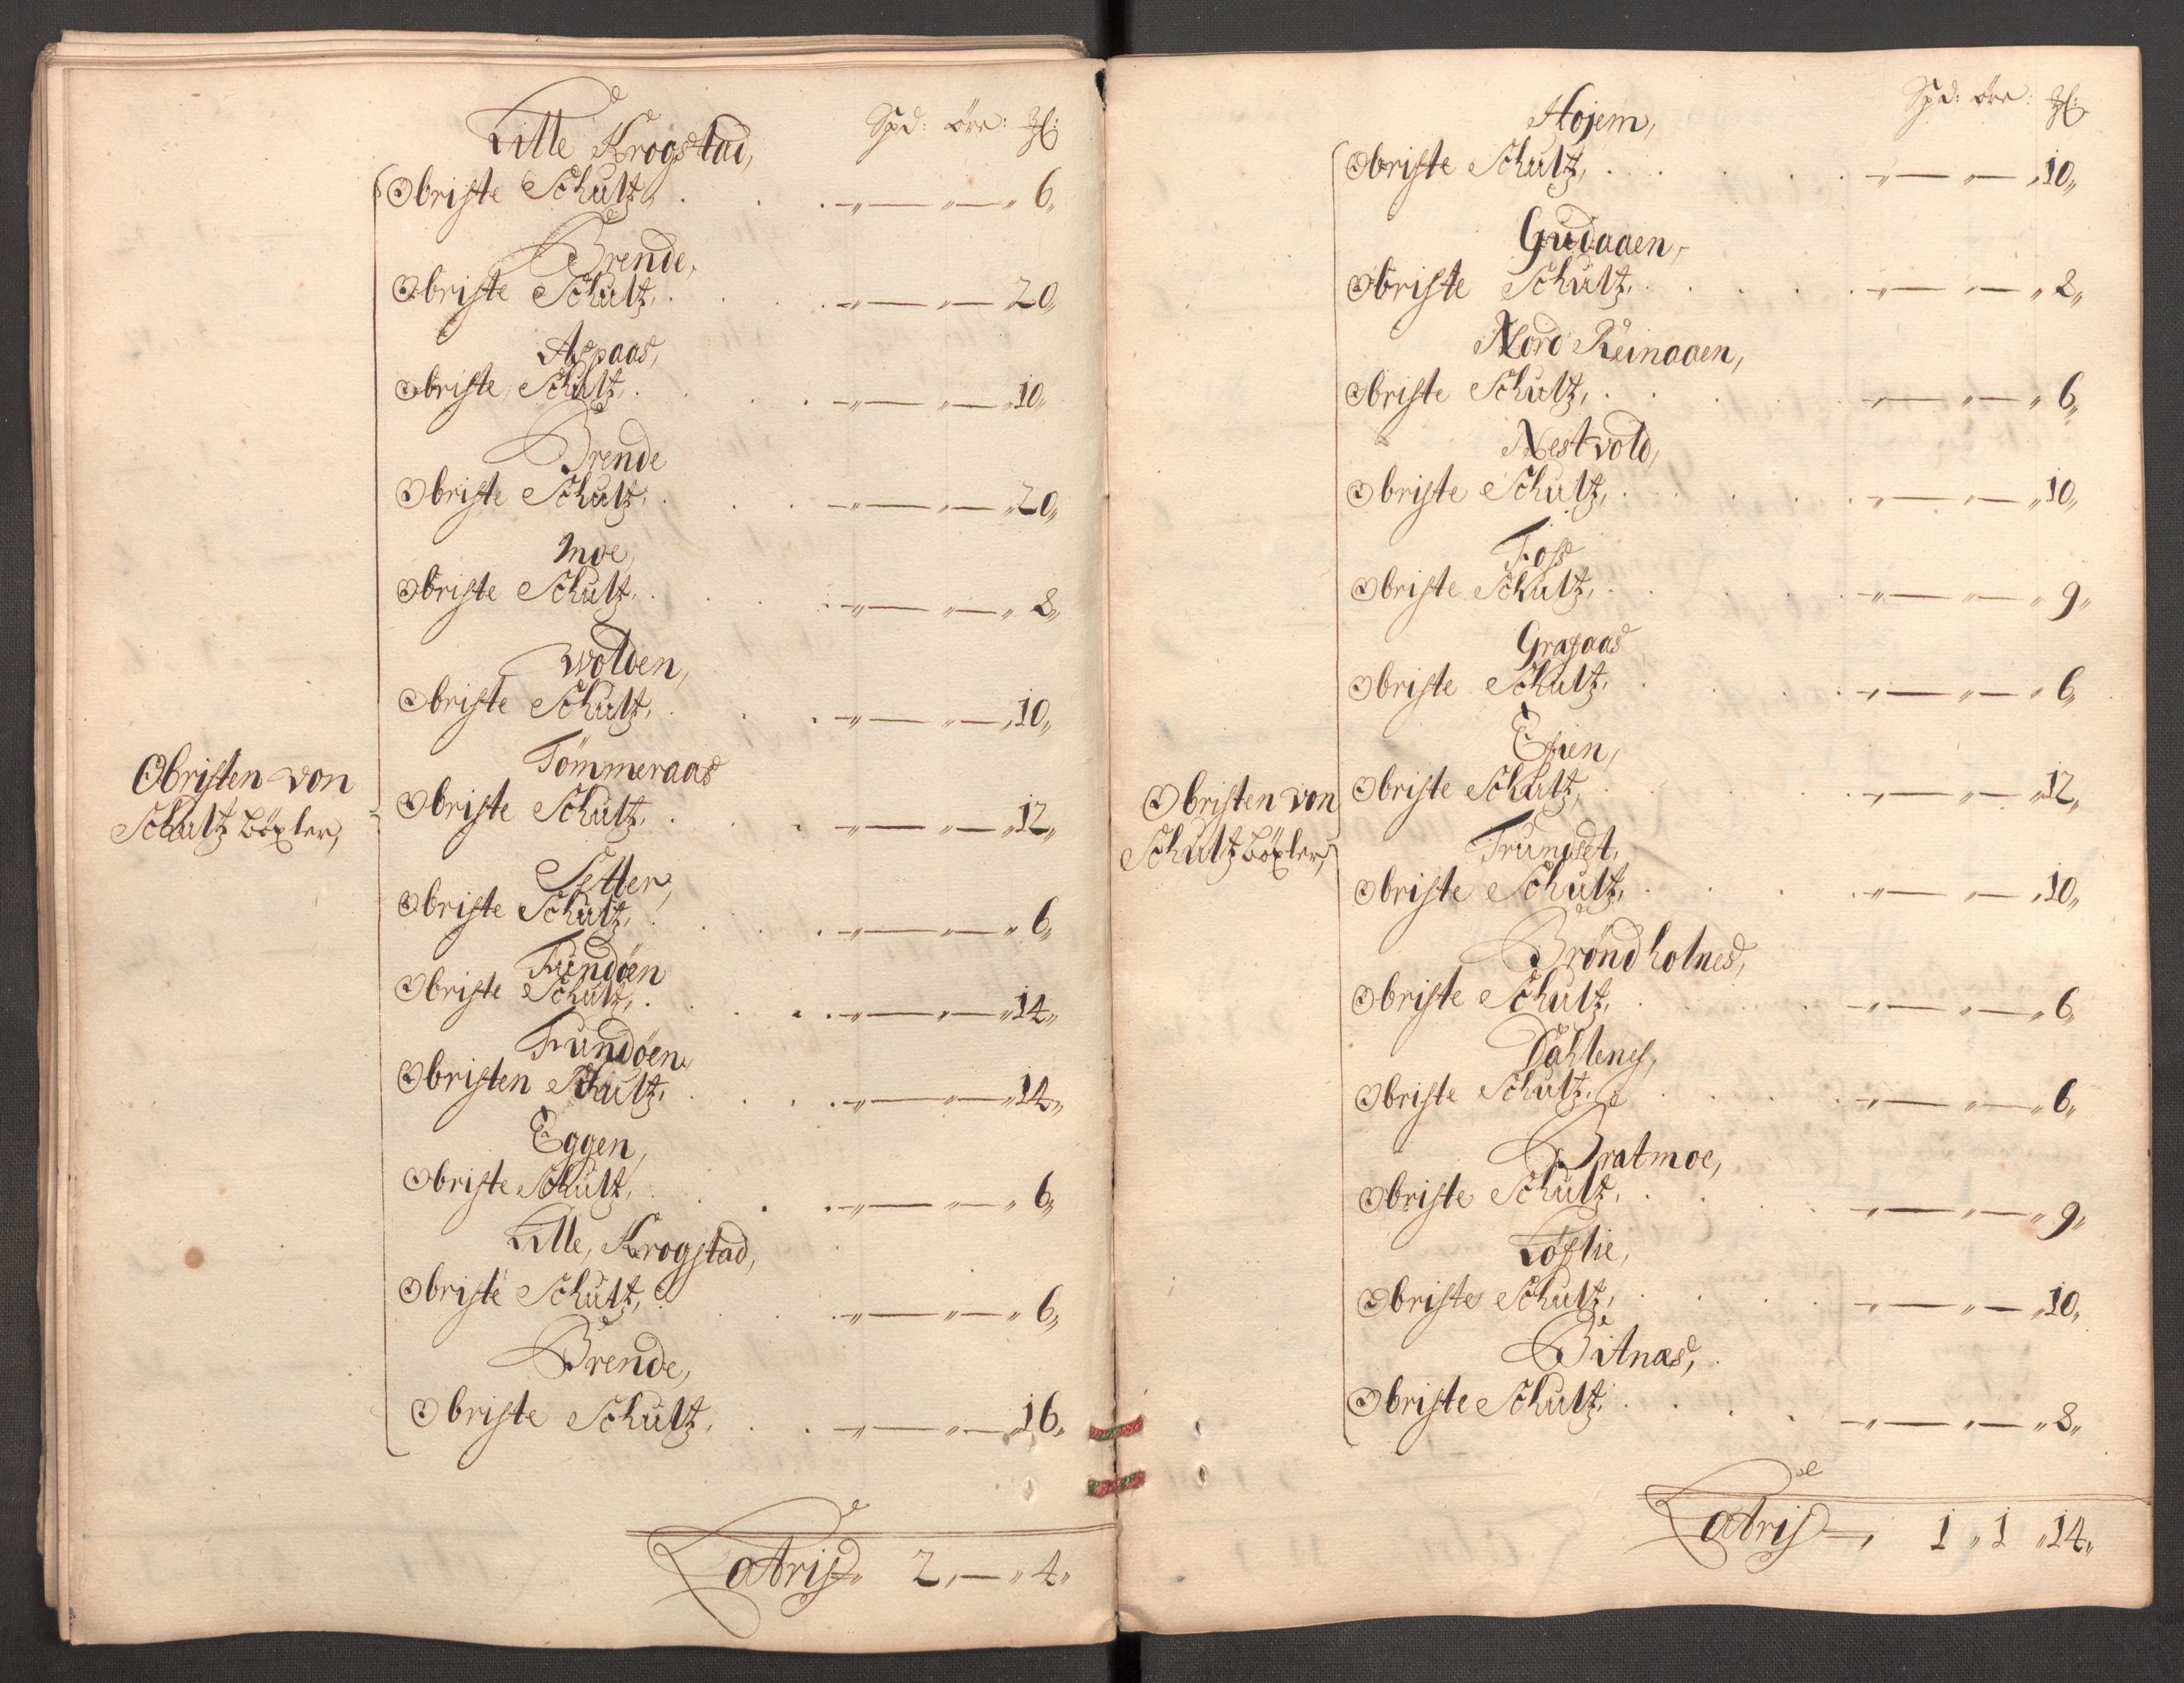 Spd: öre: ℔:
Litle Krogstad,
Obriste Schultz, . . . „ — „ — „ 6„
Brende,
Obriste Schultz, . . . „ — „ — 20„
Aspaas,
Obriste Schultz, . . . „ — „ — „10„
Brende
Obriste Schultz, . . . „ — „ — „20„
Moe,
Obriste Schultz, . . . „ — „ — „ 8„
Wolden,
Obriste Schultz, . . . „ — „ — „10„
Tömmeraas
Obristen von
Schultz Böxler,
Obriste Schultz, . . . „ — „ — „12„
Setter,
Obriste Schultz, . . . „ — „ — „ 6„
Fundöen
Obriste Schultz, . . . „ — „ — „14„
Fundöen,
Obristen Schultz, . . . „ — „ — „14„
Eggen,
Obriste Schultz, . . . „ — „ — „ 6„
Litle, Krogstad,
Obriste Schultz, . . . „ — „ — „ 6„
Brende,
Obriste Schultz, . . . „ — „ — „16„
Latris„ 2„ — „ 4„
Spd: öre: ℔:
Hojem,
Obriste Schultz, . . . „ — „ — „10„
Gudaaen,
Obriste Schultz, . . . „ — „ — „ 8„
Nord Reinaaen,
Obriste Schultz, . . . „ — „ — „ 6„
Nestvold,
Obriste Schultz, . . . „ — „ — „10„
Foss
Obriste Schultz, . . . „ — „ — „ 9„
Grafaas
Obriste Schultz, . . . „ — „ — „ 6„
Efien,
Obristen von
Schultz Böxler,
Obriste Schultz, . . . „ — „ — „12„
Trundset,
Obriste Schultz, . . . „ — „ — „10„
Bröndholnes,
Obriste Schultz, . . . „ — „ — „ 6„
Dahlenes,
Obriste Schultz, . . . „ — „ — „ 6„
Bratmoe,
Obriste Schultz, . . . „ — „ — „ 9„
Löflie,
Obriste Schultz, . . . „ — „ — „10„
Bitnæs,
Obriste Schultz, . . . „ — „ — „ 8„
Latris —, 1 „ 1 „14„